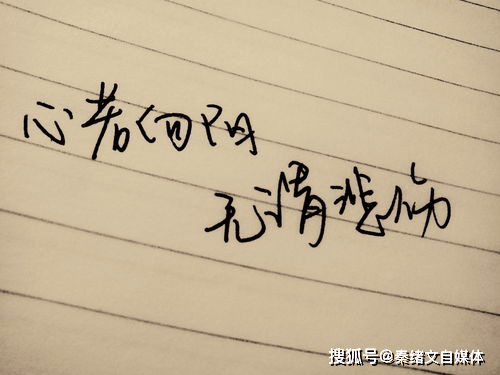 心若向阳
无谓悲伤
搜狐号@秦绪文自媒体